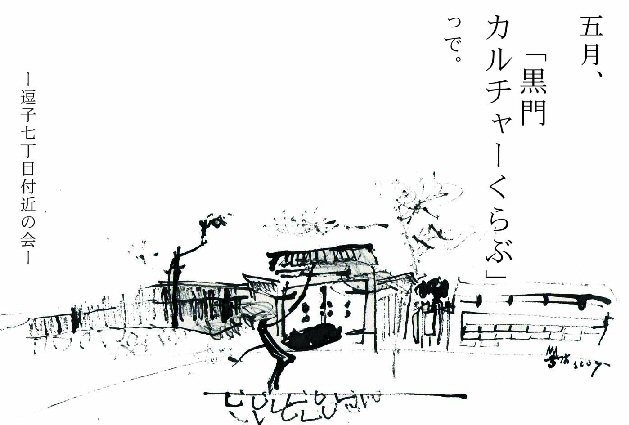 五月、
「黒門
カルチャーくらぶ」
って。
ー逗子七丁目付近の会ー